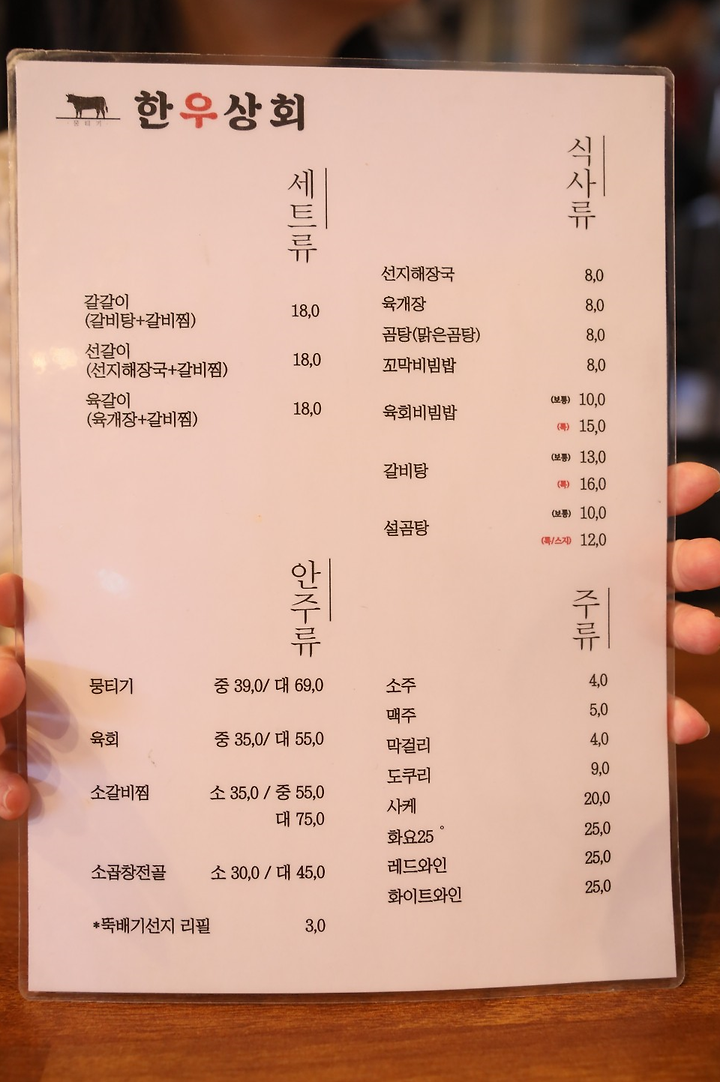 한우상회
뭉티기
세트류
갈갈이 18,0
(갈비탕+갈비찜)
선갈이 18,0
(선지해장국+갈비찜)
육갈이 18,0
(육개장+갈비찜)
식사류
선지해장국 8,0
육개장 8,0
곰탕(맑은곰탕) 8,0
꼬막비빔밥 8,0
육회비빔밥 (보통) 10,0
(특) 15,0
갈비탕 (보통) 13,0
(특) 16,0
설곰탕 (보통) 10,0
(특/스지) 12,0
안주류
뭉티기 중 39,0/ 대 69,0
육회 중 35,0/ 대 55,0
소갈비찜 소 35,0 / 중 55,0
대 75,0
소곱창전골 소 30,0 / 대 45,0
*뚝배기선지 리필 3,0
주류
소주 4,0
맥주 5,0
막걸리 4,0
도쿠리 9,0
사케 20,0
화요25° 25,0
레드와인 25,0
화이트와인 25,0